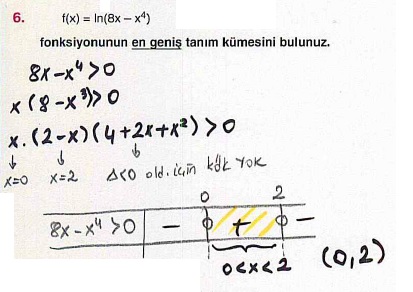 6. f(x) = ln(8x – x⁴)
fonksiyonunun en geniş tanım kümesini bulunuz.
8x-x⁴>0
x(8-x³)>0
x.(2-x)(4+2x+x²)>0
↓ ↓ ↓
x=0 x=2 Δ<0 old. için kök yok
0 2
8x-x⁴>0 - + -
0<x<2 (0,2)